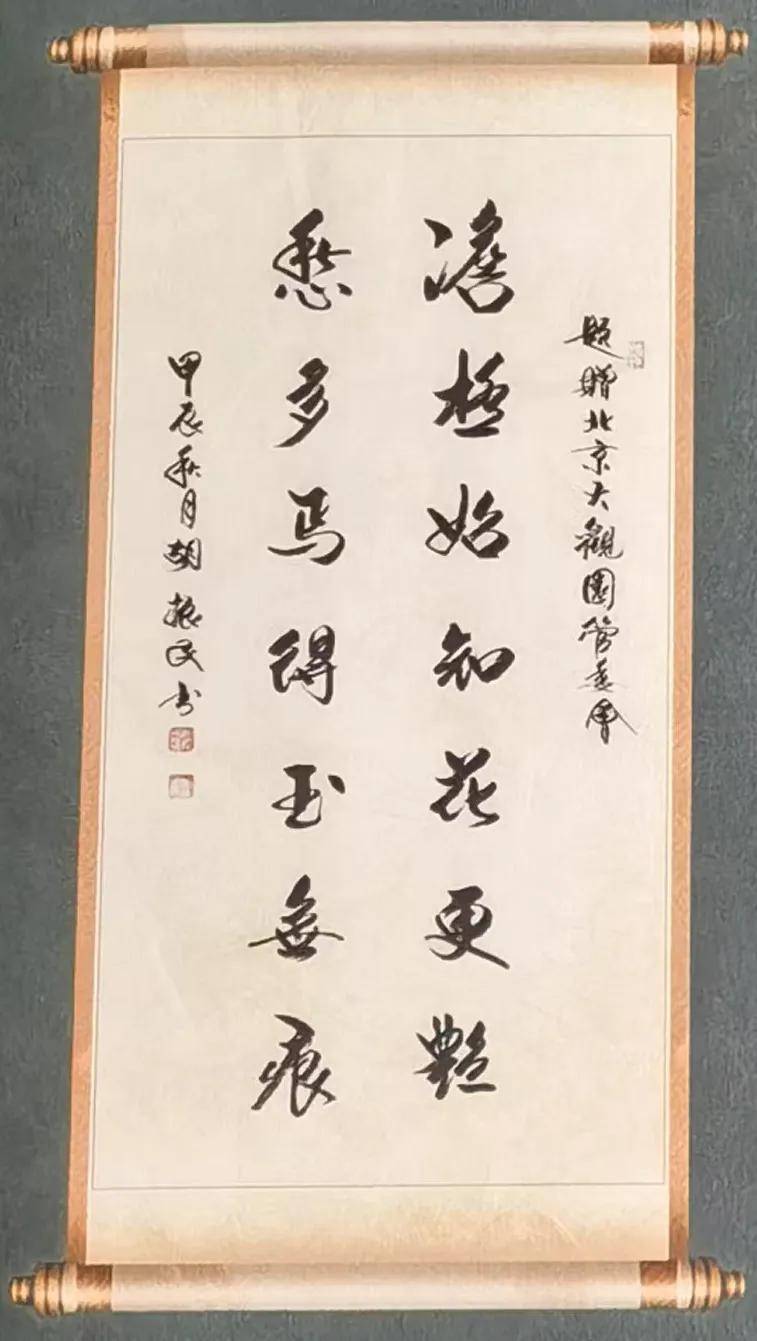 題贈北京大觀園管委會
澹極始知花更艷
愁多焉得玉無痕
甲辰秋月胡振民书